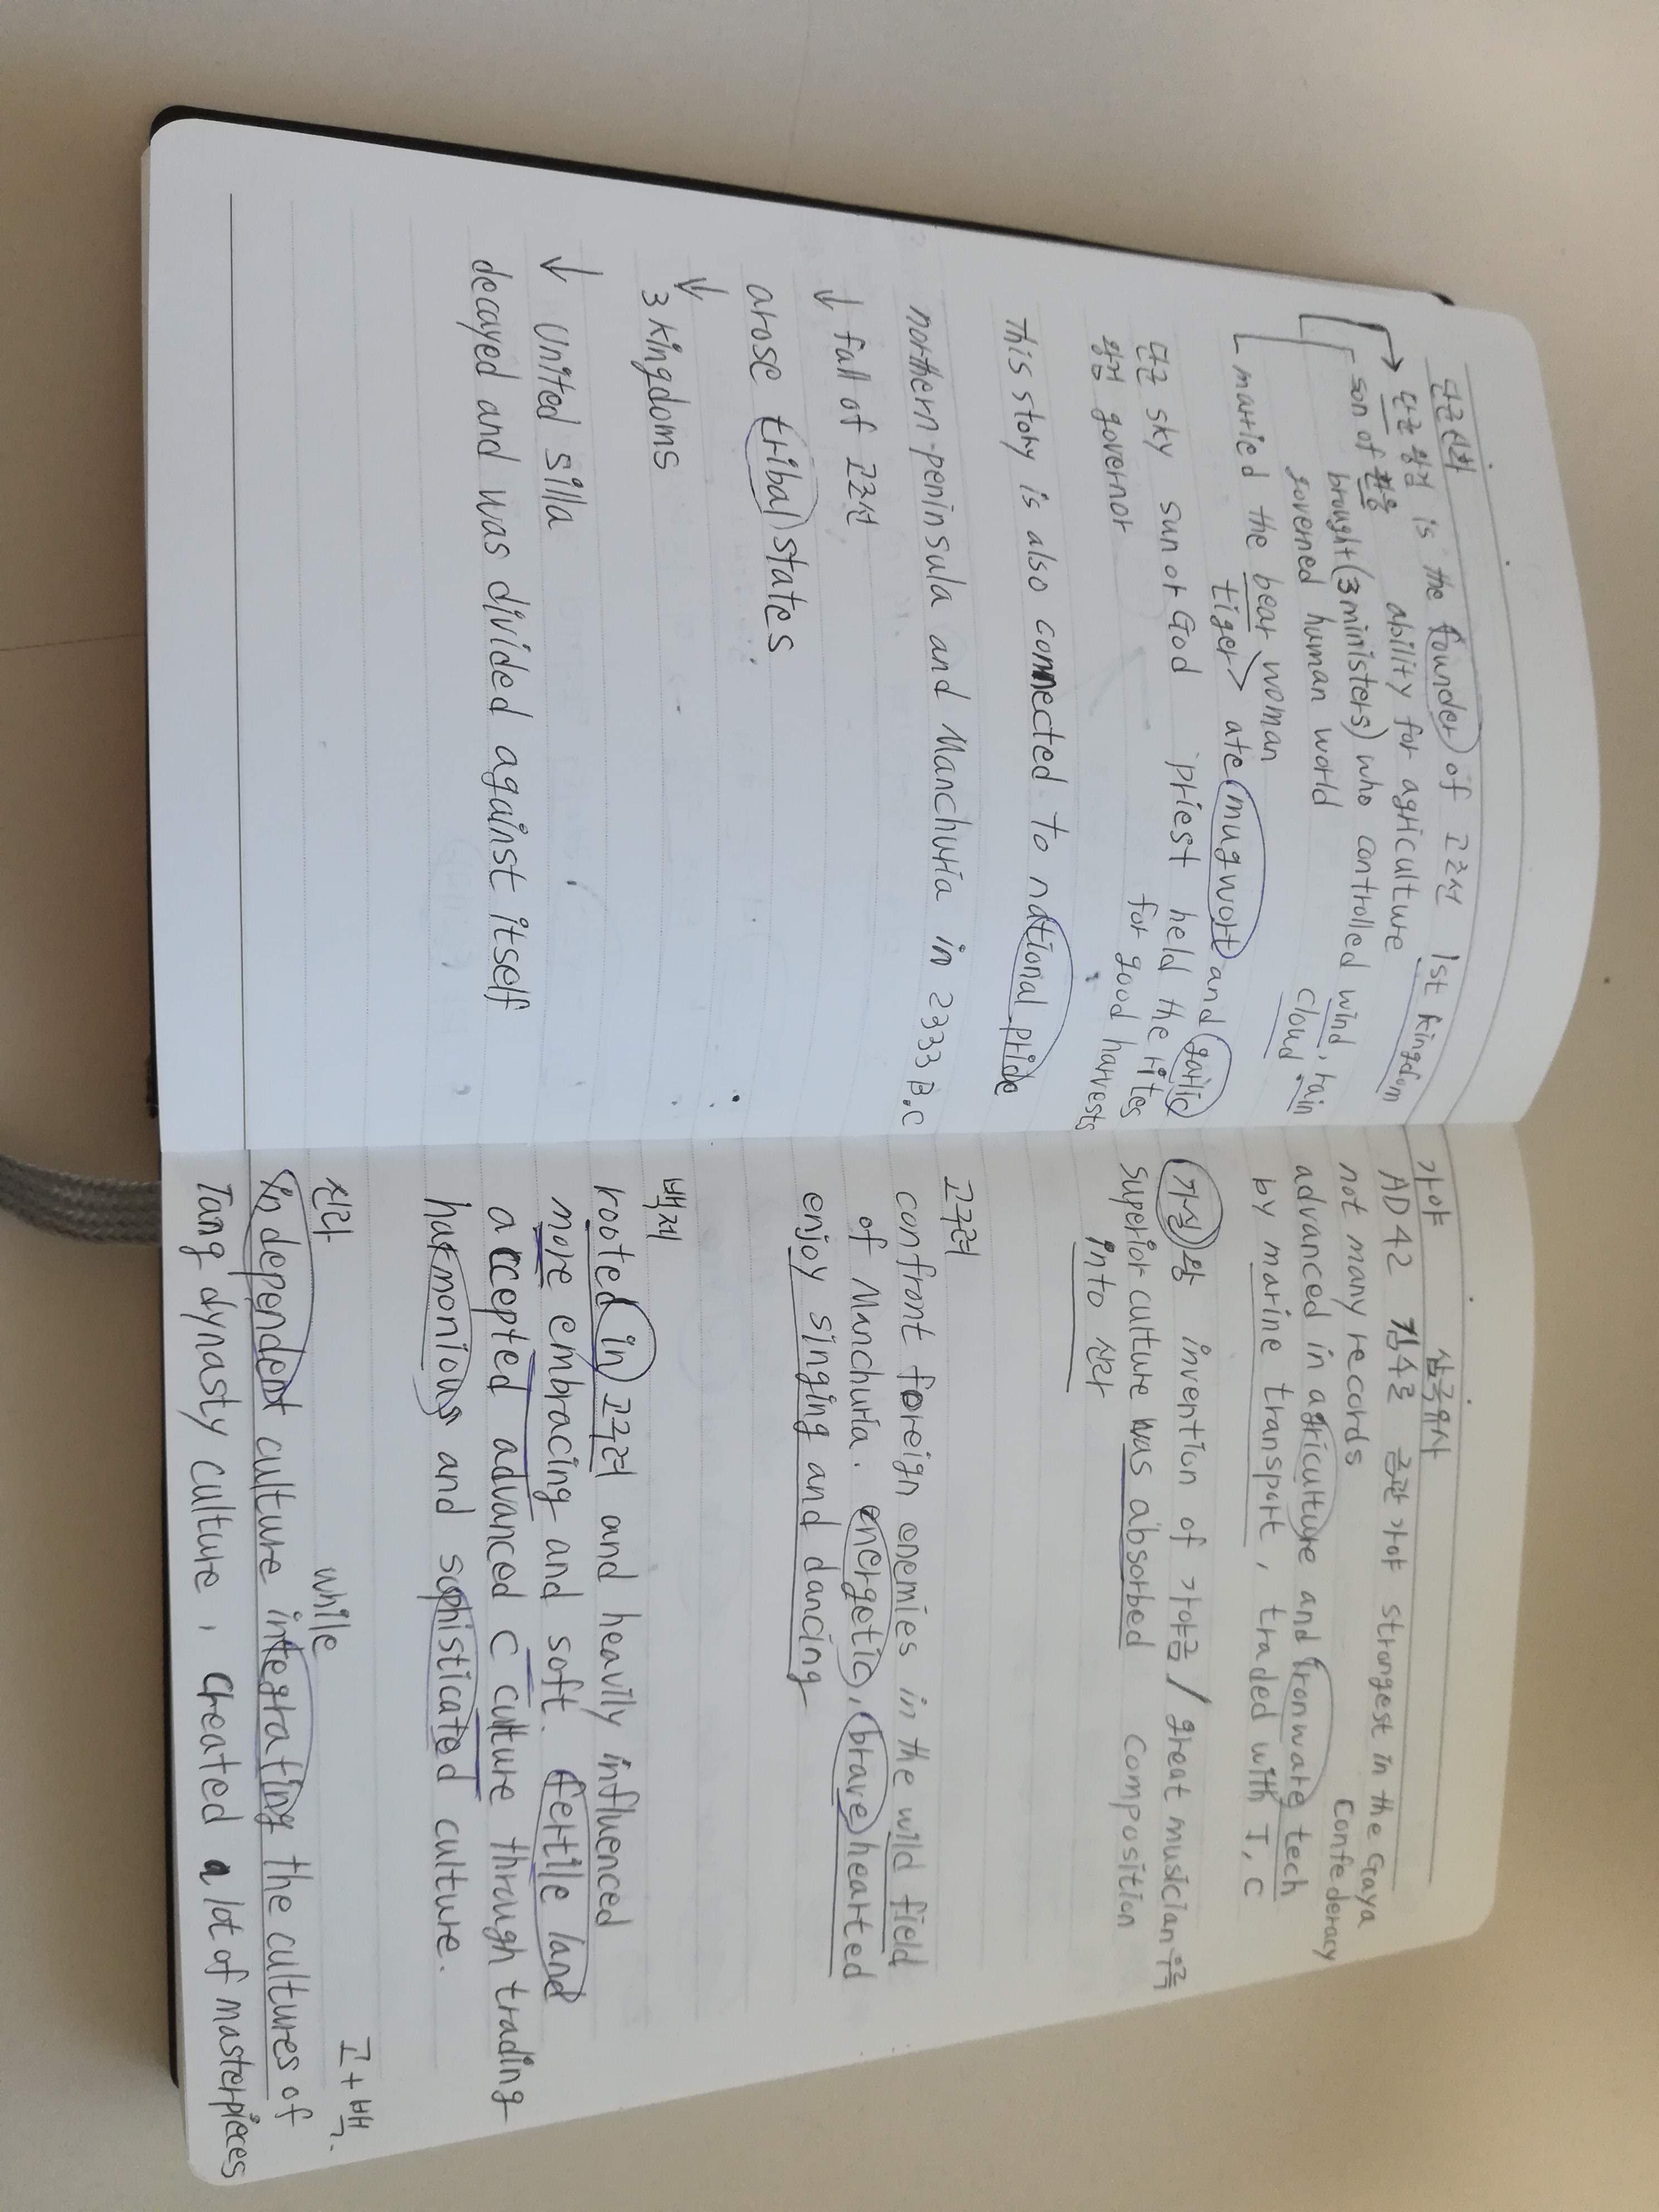 단군신화
단군왕검 is the founder of 고조선 1st kingdom
son of 환웅 ability for agriculture
brought (3 ministers) who controlled wind, rain
governed human world cloud.
married the bear woman
tiger > ate mugwort and garlic
단군 sky sun or God priest held the rites
왕검 governor for good harvests
this story is also connected to national pride
northern-peninsula and Manchuria in 2333 B.C
↓ fall of 고조선
arose tribal states
↓
3 kingdoms
↓ United silla
decayed and was divided against itself
가야 삼국유사
AD 42 김수로 금관가야 strongest in the Gaya
not many records Confederacy
advanced in agriculture and ironware tech
by marine transport, traded with J, C
가실왕 invention of 가야금 / great musician 우륵
superior culture was absorbed composition
into 신라
고구려
confront foreign enemies in the wild field
of Manchuria. energetic, brave hearted
enjoy singing and dancing
백제
rooted in 고구려 and heavily influenced
more embracing and soft. fertile land
accepted advanced C culture through trading
harmonious and sophisticated culture.
신라 while 고+백.
independent culture integrating the cultures of
Tang dynasty culture, created a lot of masterpieces